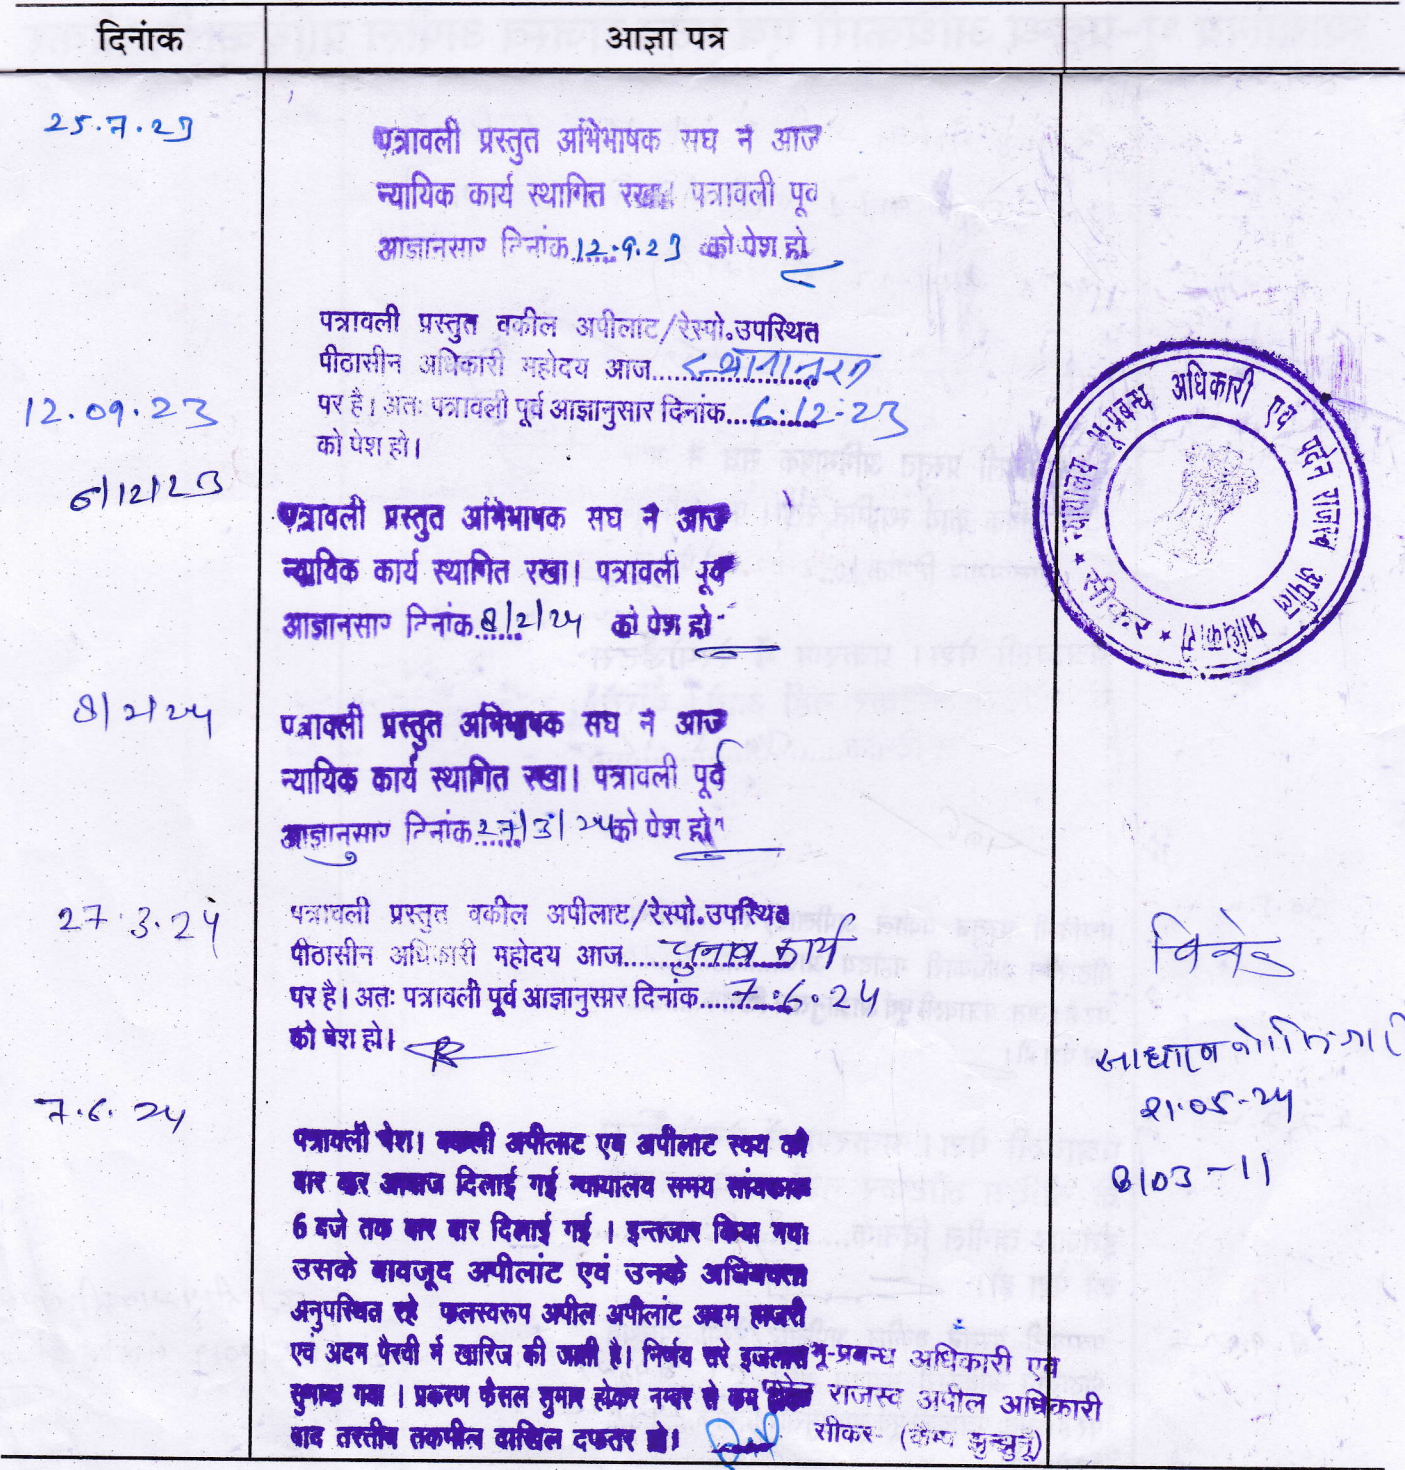 दिनांक आज्ञा पत्र
25.7.23
पत्रावली प्रस्तुत अभिभाषक सघ ने आज
न्यायिक कार्य स्थागित रखा। पत्रावली पूर्व
आज्ञानसार दिनांक 12.9.23 को पेश हो
12.09.23
पत्रावली प्रस्तुत वकील अपीलाट/रेस्पो.उपस्थित
पीठासीन अधिकारी महोदय आज....................
पर है। अतः पत्रावली पूर्व आज्ञानुसार दिनांक....6.12.23
को पेश हो।
6/12/23
पत्रावली प्रस्तुत अभिभाषक सघ ने आज
न्यायिक कार्य स्थागित रखा। पत्रावली पूर्व
आज्ञानसार दिनांक 8/2/24 को पेश हो
8/2/24
पत्रावली प्रस्तुत अभिभाषक सघ ने आज
न्यायिक कार्य स्थागित रखा। पत्रावली पूर्व
आज्ञानुसार दिनांक 27/3/24 को पेश हो
27.3.24
पत्रावली प्रस्तुत वकील अपीलाट/रेस्पो.उपस्थित
पीठासीन अधिकारी महोदय आज....चुनाव कार्य
पर है। अतः पत्रावली पूर्व आज्ञानुसार दिनांक....7.6.24
को पेश हो।
7.6.24
पत्रावली पेश। वकली अपीलाट एव अपीलाट स्वय को
बार कर आवाज दिलाई गई न्यायालय समय सांयकाल
6 बजे तक बार बार दिलाई गई । इन्तजार किया गया
उसके बावजूद अपीलांट एवं उनके अधिवक्ता
अनुपस्थित रहे फलस्वरूप अपील अपीलांट अदम हाजरी
एवं अदम पैरवी में खारिज की जाती है। निर्णय सरे इजलास
सुनाया गया । प्रकरण फैसल शुमार होकर नम्बर से कम होकर
बाद तरतीब तकमील दाखिल दफतर हो।
न्यायालय भू-प्रबन्ध अधिकारी एवं पदेन राजस्व अपील प्राधिकारी
* सीकर *
21.05.24
8/03-11
भू-प्रबन्ध अधिकारी एवं
पदेन राजस्व अपील अधिकारी
सीकर (कैम्प झुन्झुनूं)